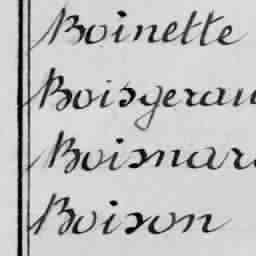 Boinette
Boisgerau
Boismars
Boison